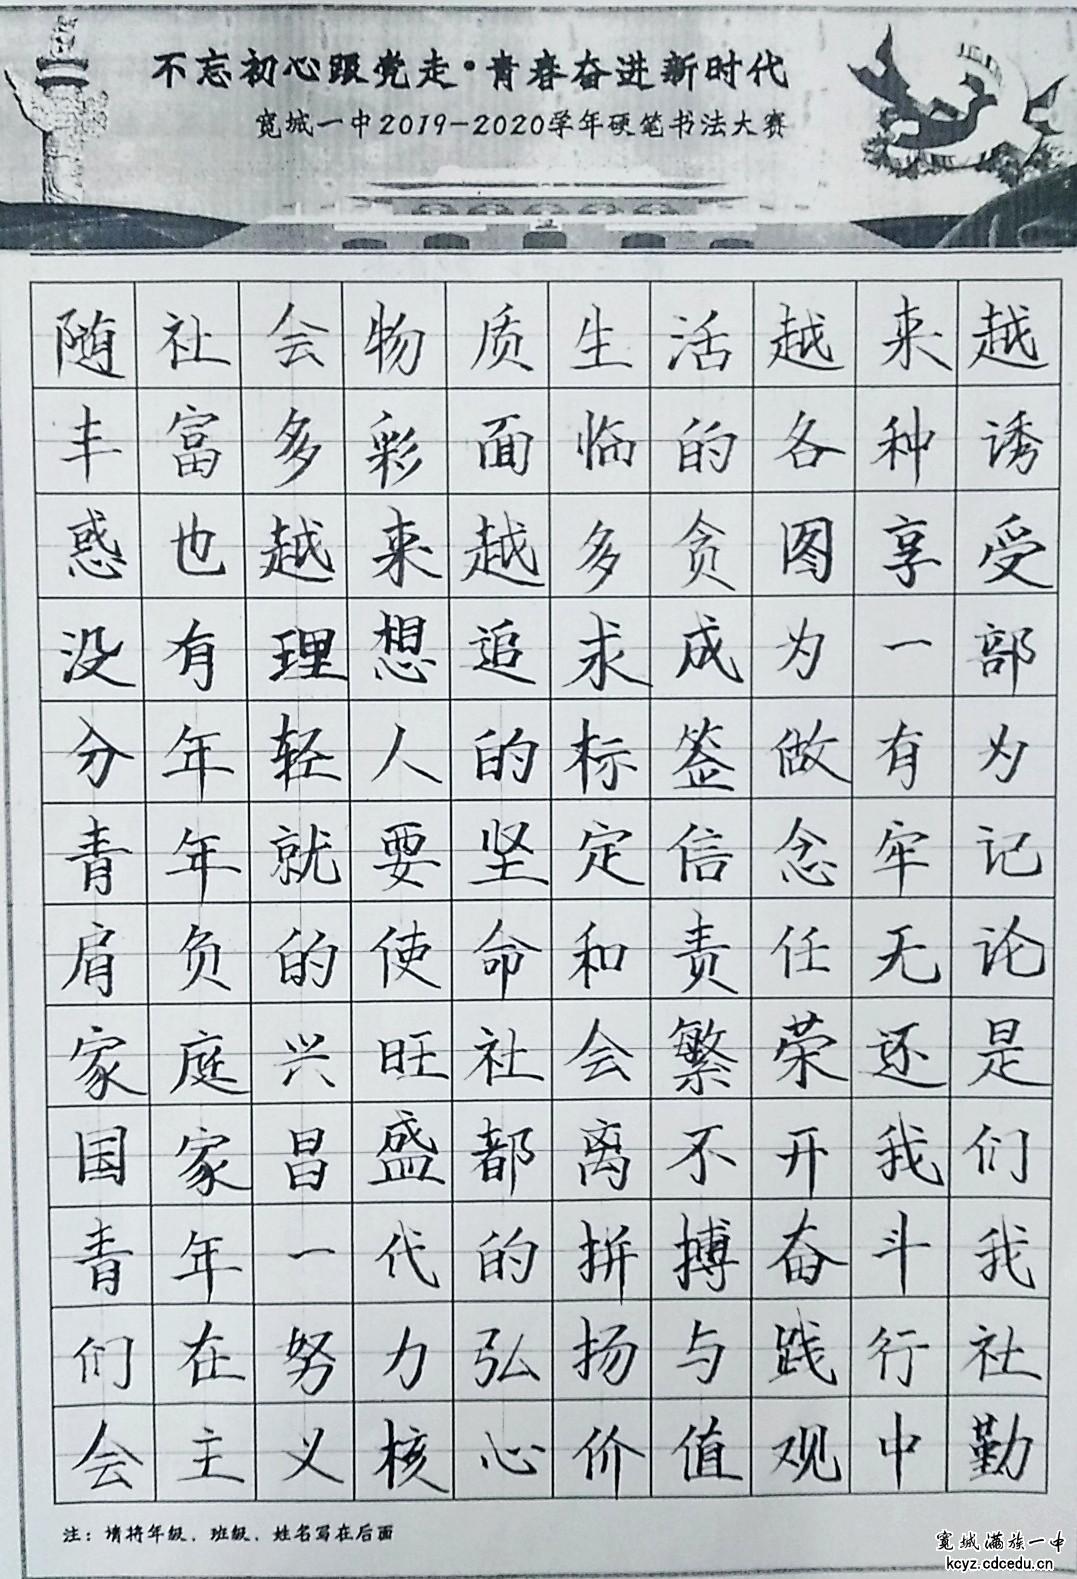 不忘初心跟党走·青春奋进新时代
宽城一中2019-2020学年硬笔书法大赛
随社会物质生活越来越
丰富多彩面临的各种诱
惑也越来越多贪图享受
没有理想追求成为一部
分年轻人的标签做有为
青年就要坚定信念牢记
肩负的使命和责任无论
家庭兴旺社会繁荣还是
国家昌盛都离不开我们
青年一代的拼搏奋斗我
们在努力弘扬与践行社
会主义核心价值观中勤
注：请将年级、班级、姓名写在后面
宽城满族一中
kcyz.cdcedu.cn